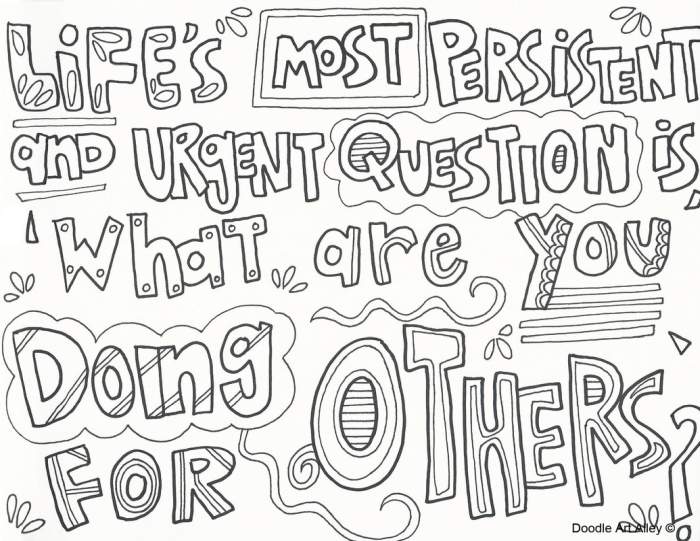 LiFE'S MOST PERSiSTENT
and URgENT QUESTION is,
'What are YOU
Doing OTHERS?'
FOR
Doodle Art Alley ©